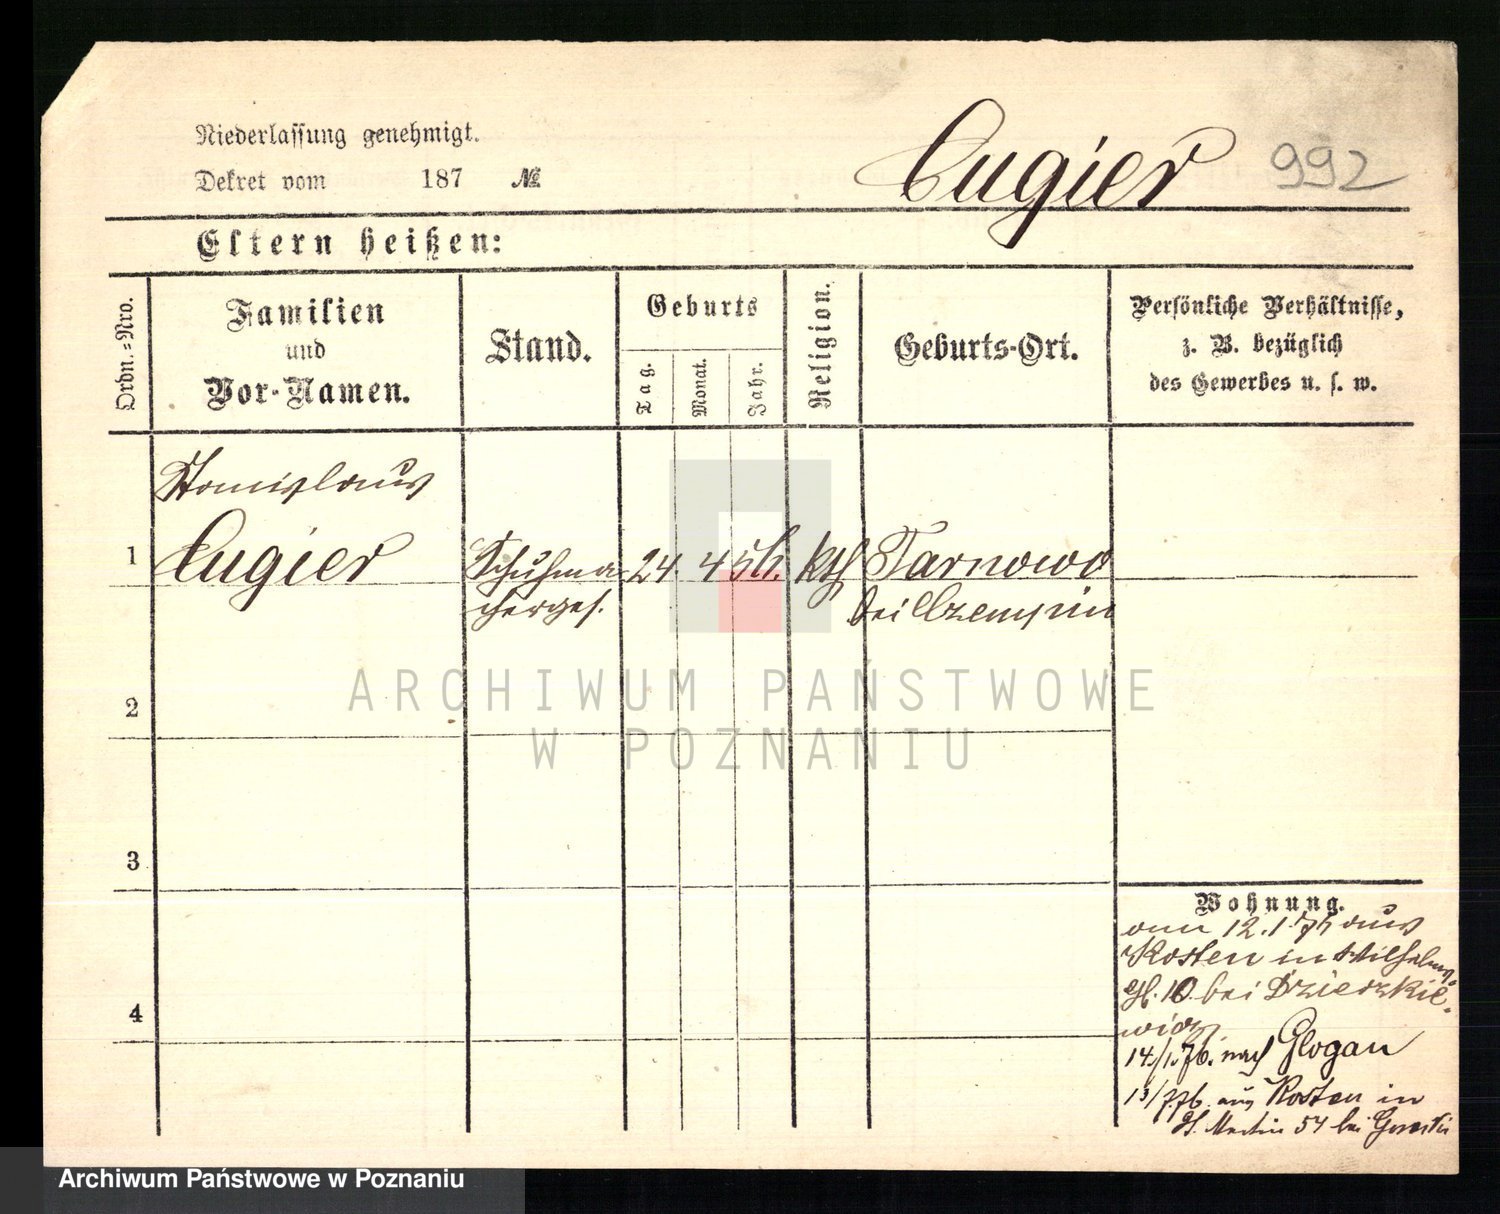 Niederlassung genehmigt.
Dekret vom 187 №
Cugier 992
Eltern heißen:
Ordn.-Nro.
Familien
und
Vor-Namen.
Stand.
Geburts
Tag.
Monat.
Jahr.
Religion.
Geburts-Ort.
Persönliche Verhältnisse,
z. B. bezüglich
des Gewerbes u. s. w.
Stanislaus
1 Cugier Schuhma 24. 4 kth Tarnowo
cherges. bei Czempin
2
3
4
Wohnung.
am 12.1. aus
Kosten in Wilhelms
pl. 10 bei Dzierzkie-
wicz
14/1.76. nach Glogau
13/7.76. aus Kosten in
St. Martin 54 bei
ARCHIWUM PAŃSTWOWE
W POZNANIU
Archiwum Państwowe w Poznaniu